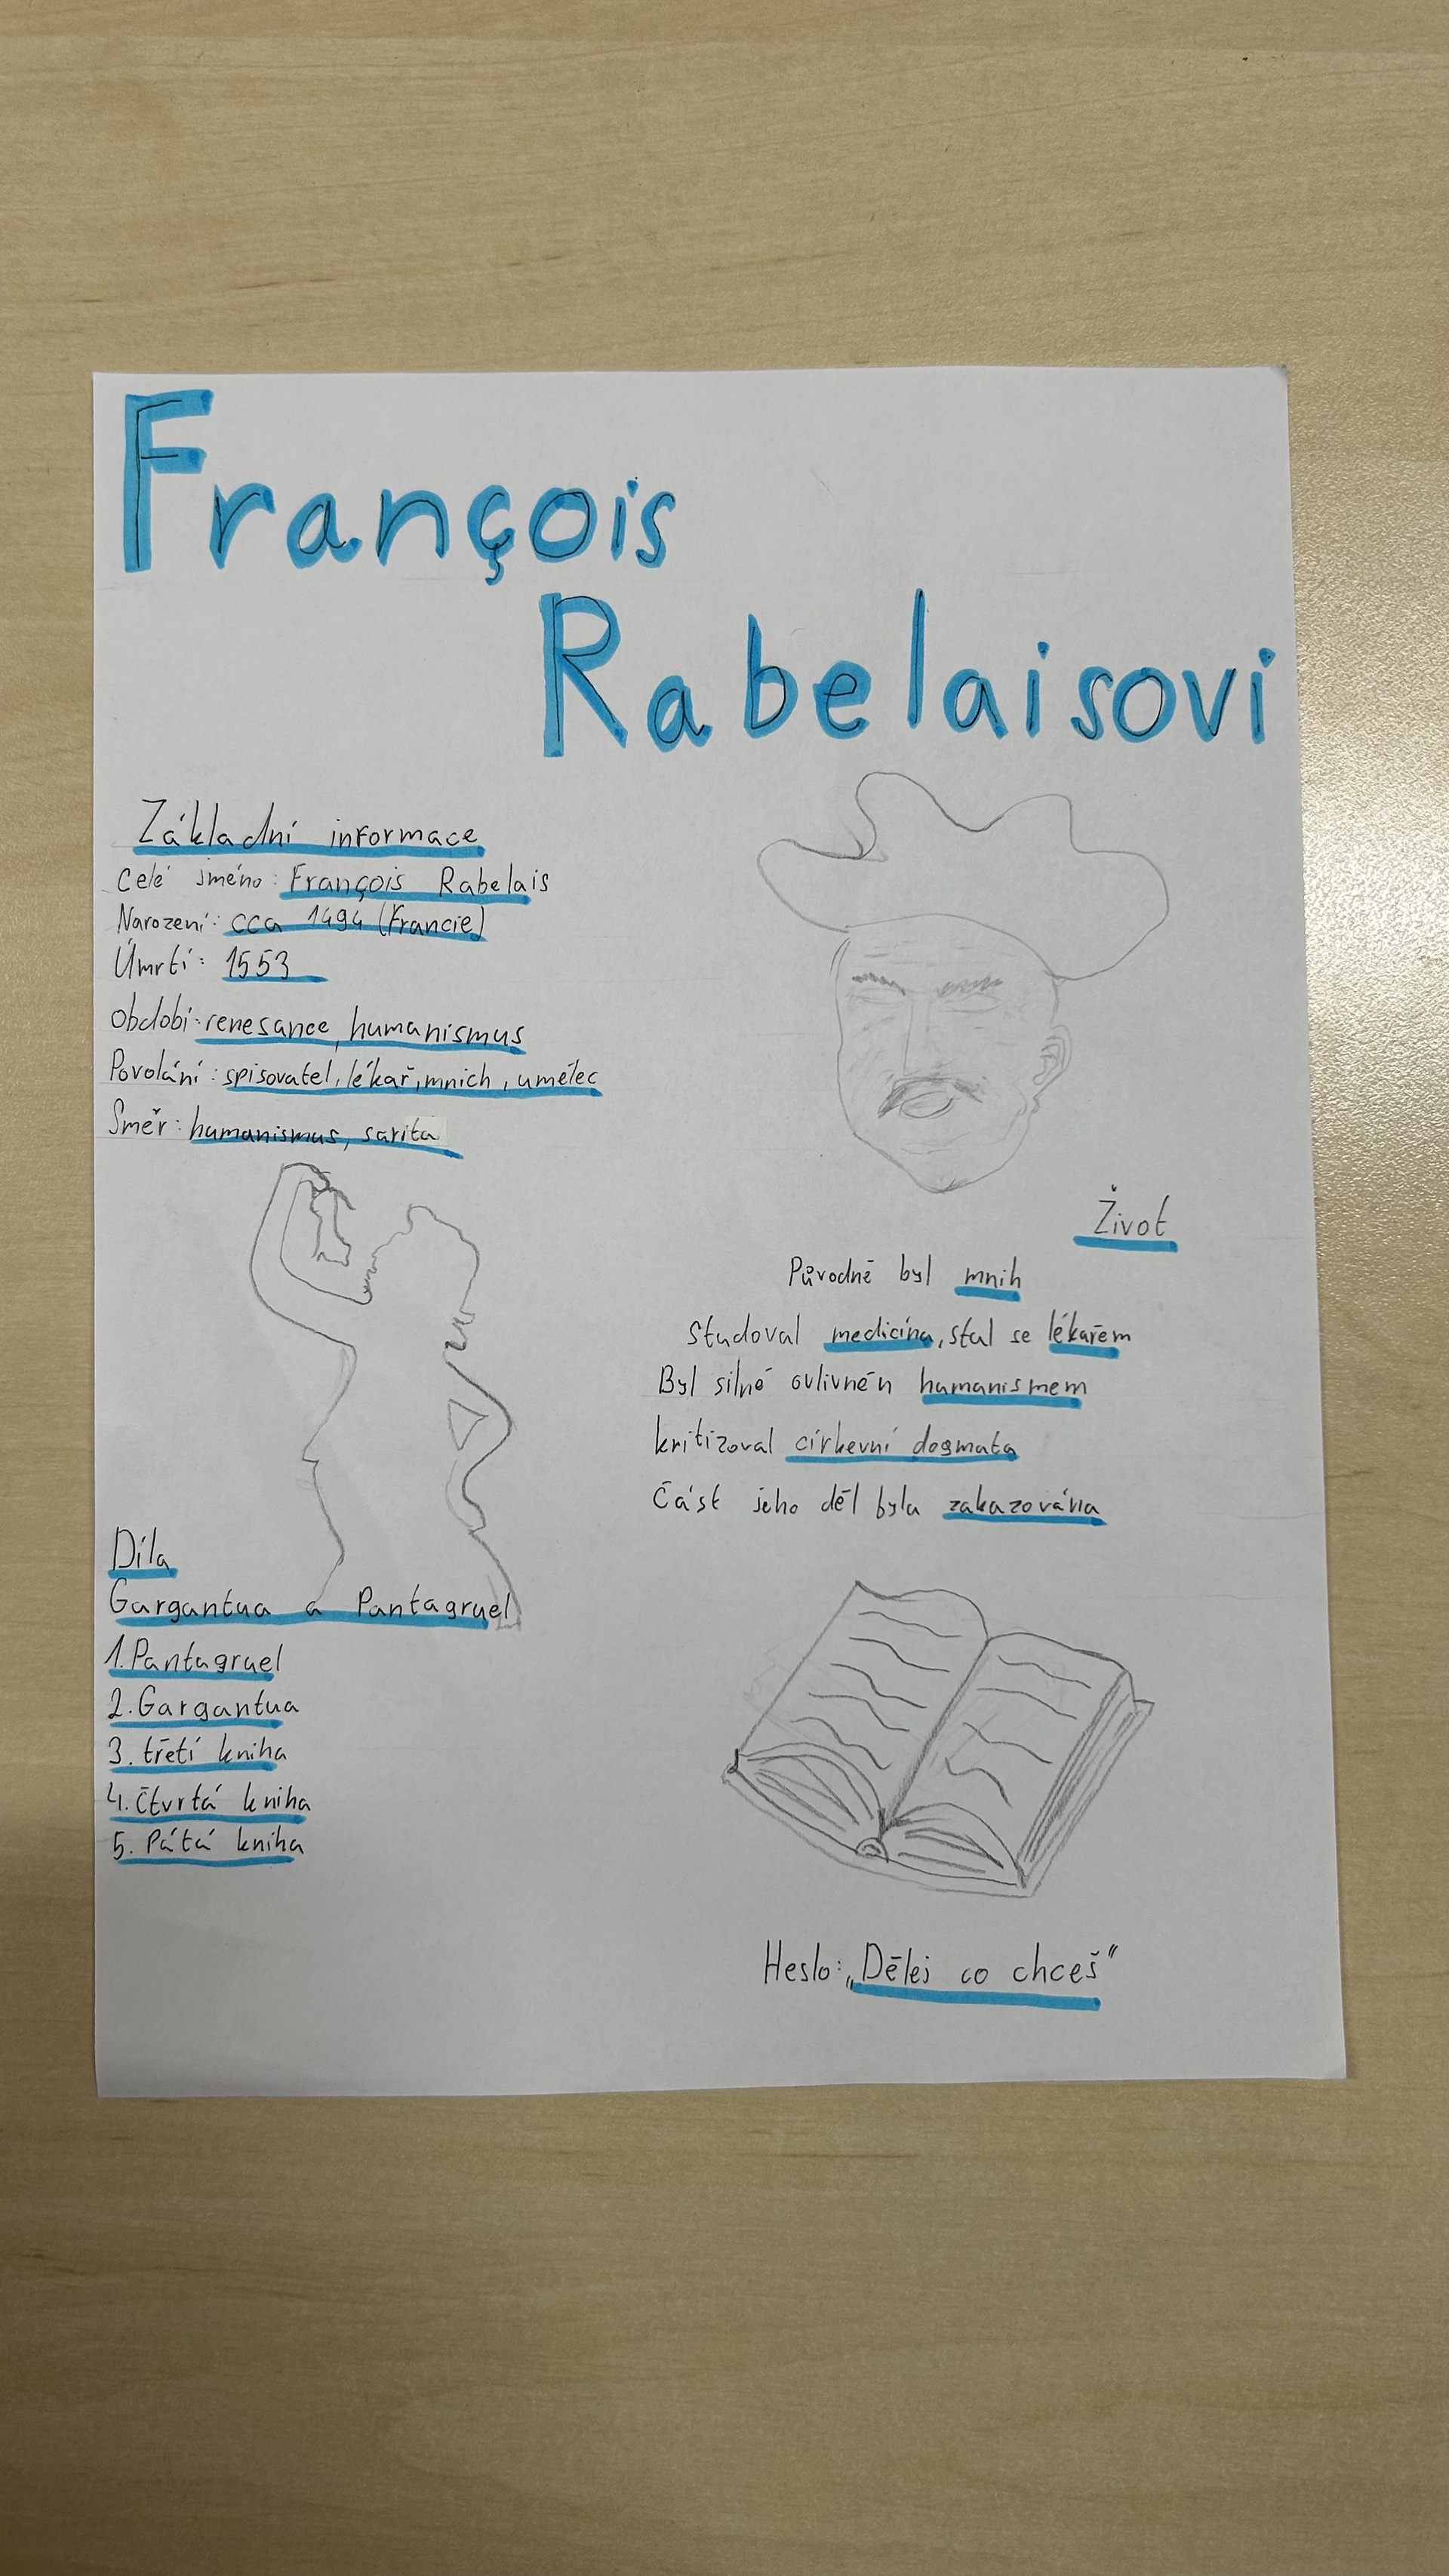 François
Rabelaisovi
Základní informace
Celé jméno: François Rabelais
Narození: cca 1494 (Francie)
Úmrtí: 1553
Období: renesance, humanismus
Povolání: spisovatel, lékař, mnich, umělec
Směr: humanismus, sarita
Život
Původně byl mnih
Studoval medicína, stal se lékařem
Byl silně ovlivněn humanismem
kritizoval církevní dogmata
Část jeho děl byla zakazována
Díla
Gargantua a Pantagruel
1. Pantagruel
2. Gargantua
3. třetí kniha
4. Čtvrtá kniha
5. Pátá kniha
Heslo: „Dělej co chceš"